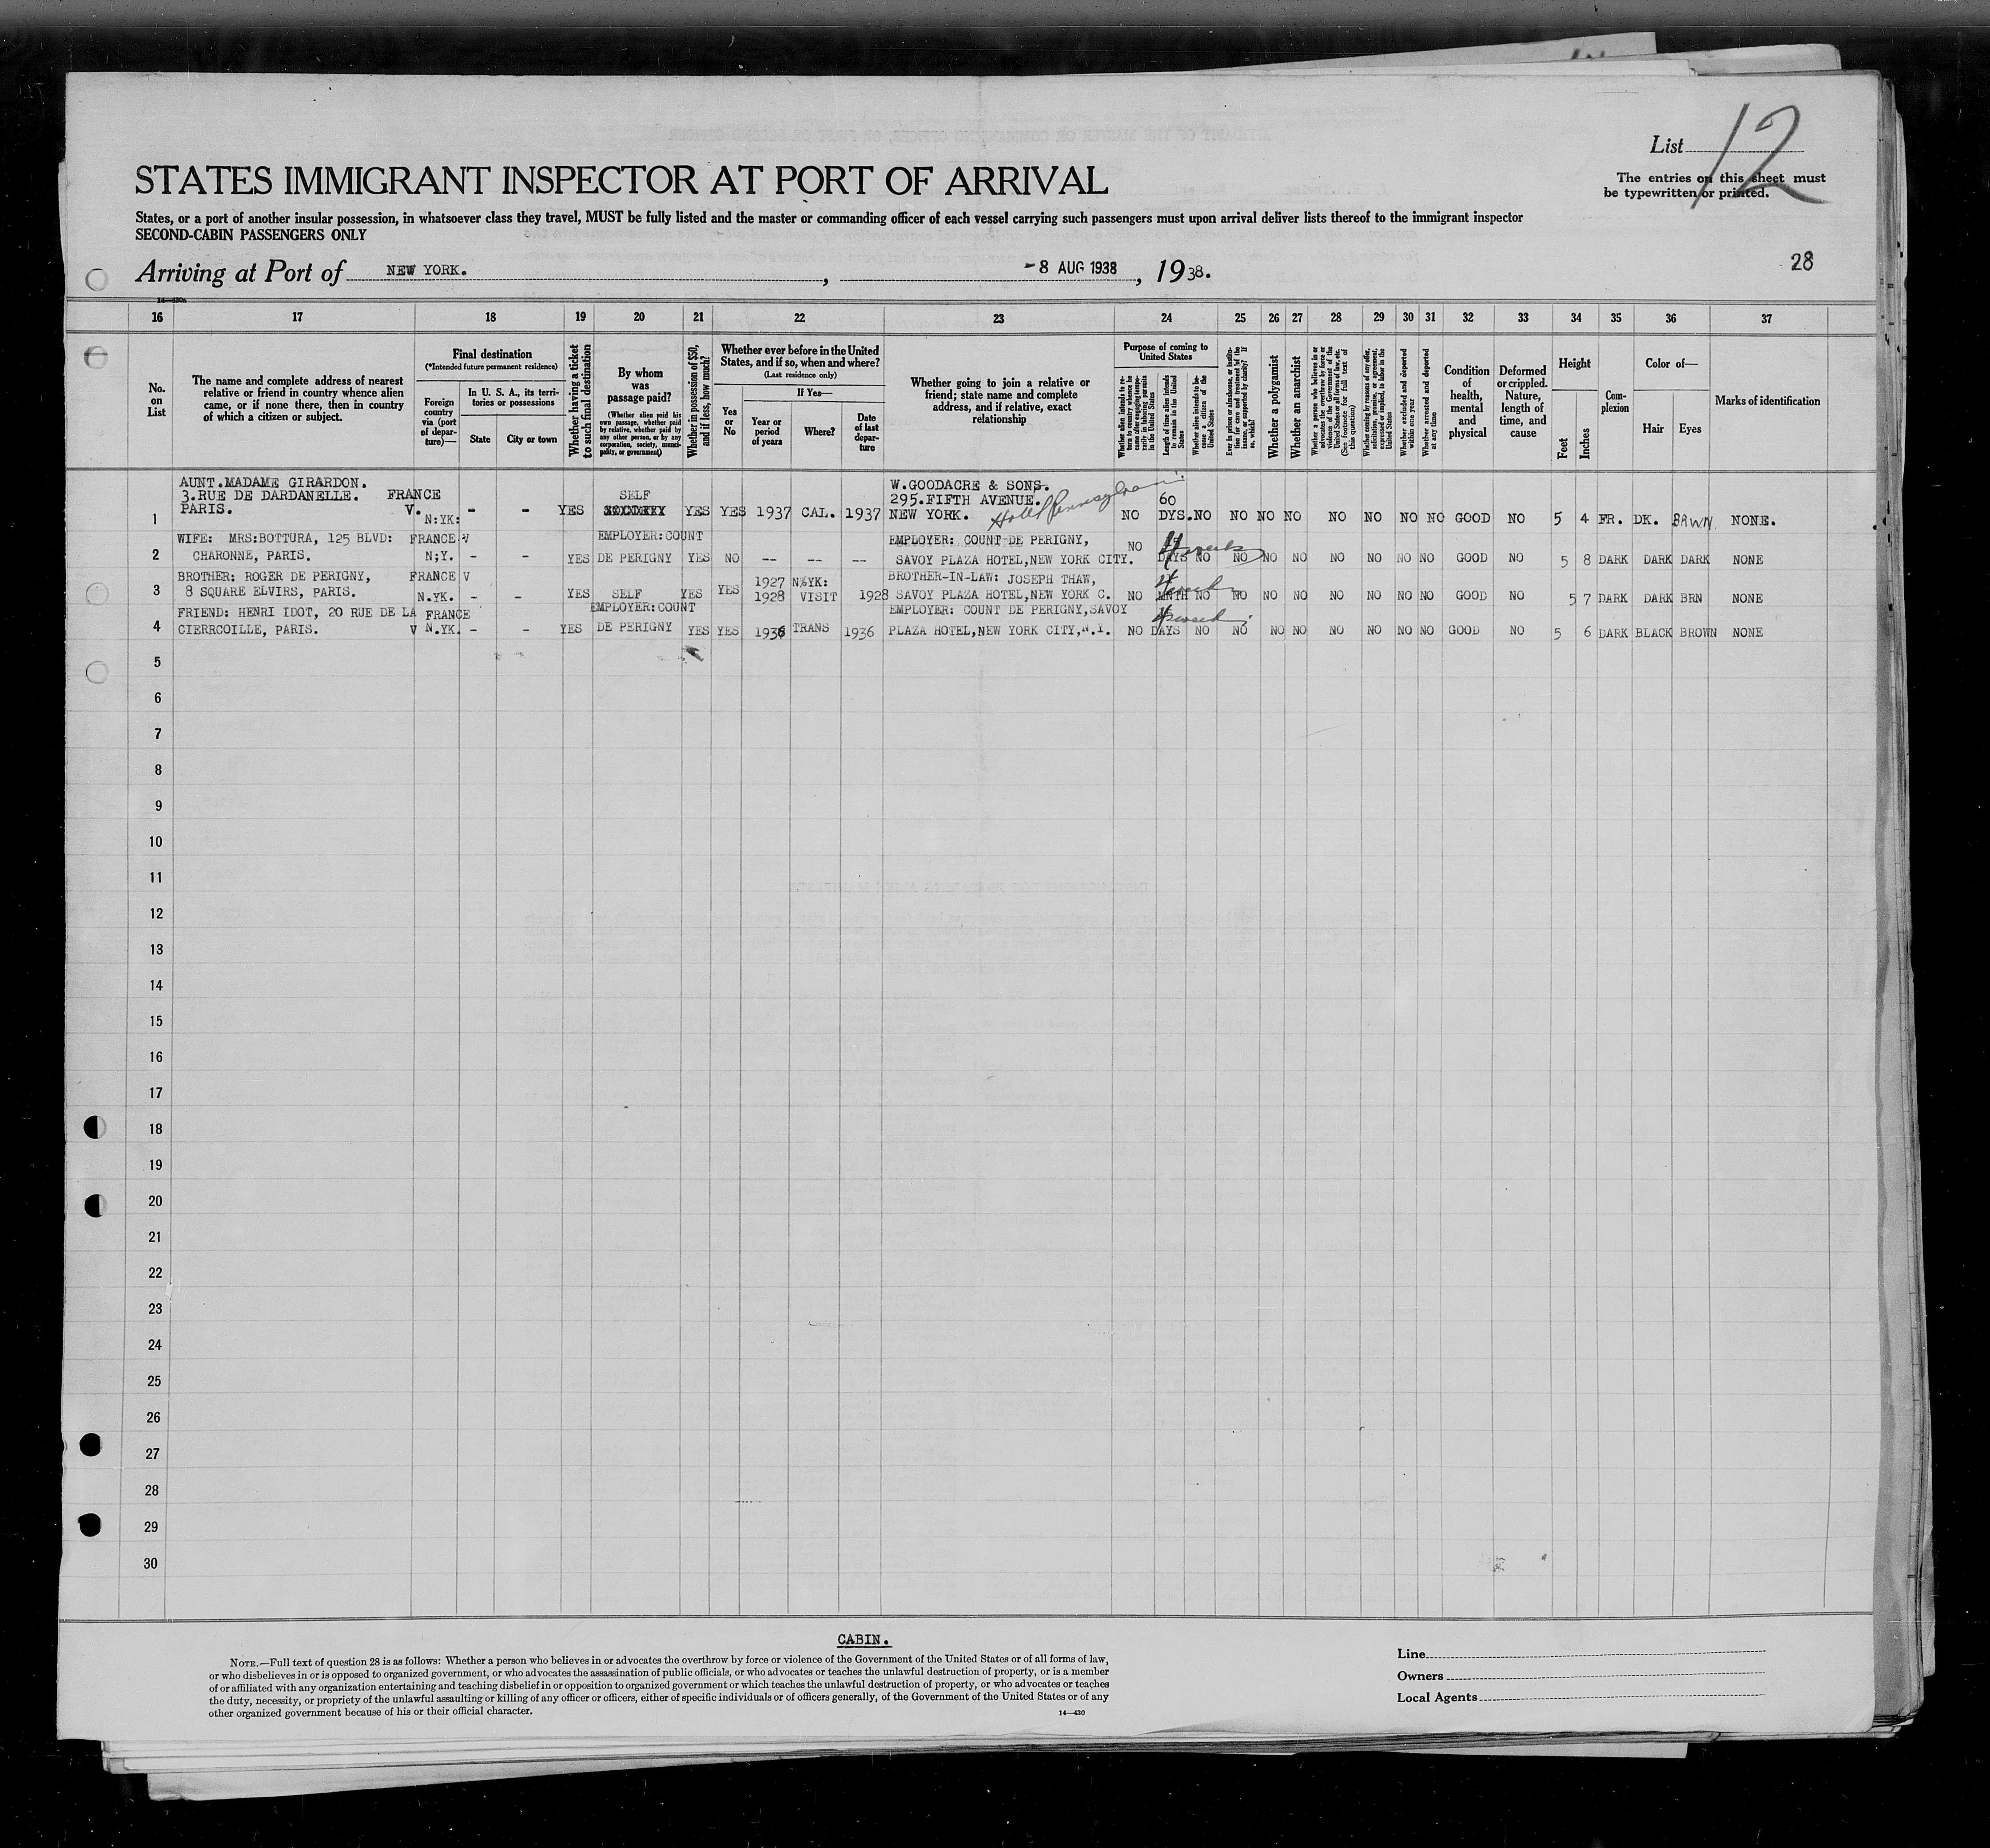 List 12
The entries on this sheet must
be typewritten or printed.
STATES IMMIGRANT INSPECTOR AT PORT OF ARRIVAL
States, or a port of another insular possession, in whatsoever class they travel, MUST be fully listed and the master or commanding officer of each vessel carrying such passengers must upon arrival deliver lists thereof to the immigrant inspector
SECOND-CABIN PASSENGERS ONLY
Arriving at Port of NEW YORK. , -8 AUG 1938 , 1938.
28
14—430a
16 17 18 19 20 21 22 23 24 25 26 27 28 29 30 31 32 33 34 35 36 37
No. on List
The name and complete address of nearest
relative or friend in country whence alien
came, or if none there, then in country
of which a citizen or subject.
Final destination
(*Intended future permanent residence)
Foreign country via (port of departure)—
In U. S. A., its territories or possessions
State
City or town
Whether having a ticket to such final destination
By whom was passage paid?
(Whether alien paid his own passage, whether paid by relative, whether paid by any other person, or by any corporation, society, municipality, or government)
Whether in possession of $50, and if less, how much?
Whether ever before in the United States, and if so, when and where?
(Last residence only)
Yes or No
If Yes—
Year or period of years
Where?
Date of last departure
Whether going to join a relative or
friend; state name and complete
address, and if relative, exact
relationship
Purpose of coming to United States
Whether alien intends to return to country whence he came after engaging temporarily in laboring pursuits in the United States
Length of time alien intends to remain in the United States
Whether alien intends to become a citizen of the United States
Ever in prison or almshouse, or institution for care and treatment of the insane, or supported by charity? If so, which?
Whether a polygamist
Whether an anarchist
Whether a person who believes in or advocates the overthrow by force or violence of the Government of the United States or all forms of law, etc. (See footnote for full text of this question)
Whether coming by reasons of any offer, solicitation, promise, or agreement, expressed or implied, to labor in the United States
Whether excluded and deported within one year
Whether arrested and deported at any time
Condition of health, mental and physical
Deformed or crippled. Nature, length of time, and cause
Height
Feet
Inches
Complexion
Color of—
Hair
Eyes
Marks of identification
1 AUNT.MADAME GIRARDON.
3.RUE DE DARDANELLE. FRANCE
PARIS. V. N:YK: - - YES SELF YES YES 1937 CAL. 1937
W.GOODACRE & SONS.
295.FIFTH AVENUE.
NEW YORK. Hotel Pennsylvania
NO 60 DYS. NO NO NO NO NO NO NO NO GOOD NO 5 4 FR. DK. BRWN. NONE.
2 WIFE: MRS:BOTTURA, 125 BLVD: FRANCE V
CHARONNE, PARIS. N;Y. - - YES EMPLOYER:COUNT
DE PERIGNY YES NO -- -- --
EMPLOYER: COUNT DE PERIGNY,
SAVOY PLAZA HOTEL,NEW YORK CITY.
NO DAYS 4 weeks NO NO NO NO NO NO NO NO GOOD NO 5 8 DARK DARK DARK NONE
3 BROTHER: ROGER DE PERIGNY, FRANCE V
8 SQUARE ELVIRS, PARIS. N.YK. - - YES SELF YES YES 1927 N.YK:
1928 VISIT 1928
BROTHER-IN-LAW: JOSEPH THAW,
SAVOY PLAZA HOTEL,NEW YORK C.
NO MNTH 4 week NO NO NO NO NO NO NO NO GOOD NO 5 7 DARK DARK BRN NONE
4 FRIEND: HENRI IDOT, 20 RUE DE LA FRANCE
CIERRCOILLE, PARIS. V N.YK. - - YES EMPLOYER:COUNT
DE PERIGNY YES YES 1936 TRANS 1936
EMPLOYER: COUNT DE PERIGNY,SAVOY
PLAZA HOTEL,NEW YORK CITY,N.Y.
NO DAYS 4 week NO NO NO NO NO NO NO NO GOOD NO 5 6 DARK BLACK BROWN NONE
5
6
7
8
9
10
11
12
13
14
15
16
17
18
19
20
21
22
23
24
25
26
27
28
29
30
CABIN.
NOTE.—Full text of question 28 is as follows: Whether a person who believes in or advocates the overthrow by force or violence of the Government of the United States or of all forms of law,
or who disbelieves in or is opposed to organized government, or who advocates the assassination of public officials, or who advocates or teaches the unlawful destruction of property, or is a member
of or affiliated with any organization entertaining and teaching disbelief in or opposition to organized government or which teaches the unlawful destruction of property, or who advocates or teaches
the duty, necessity, or propriety of the unlawful assaulting or killing of any officer or officers, either of specific individuals or of officers generally, of the Government of the United States or of any
other organized government because of his or their official character.
14—430
Line
Owners
Local Agents